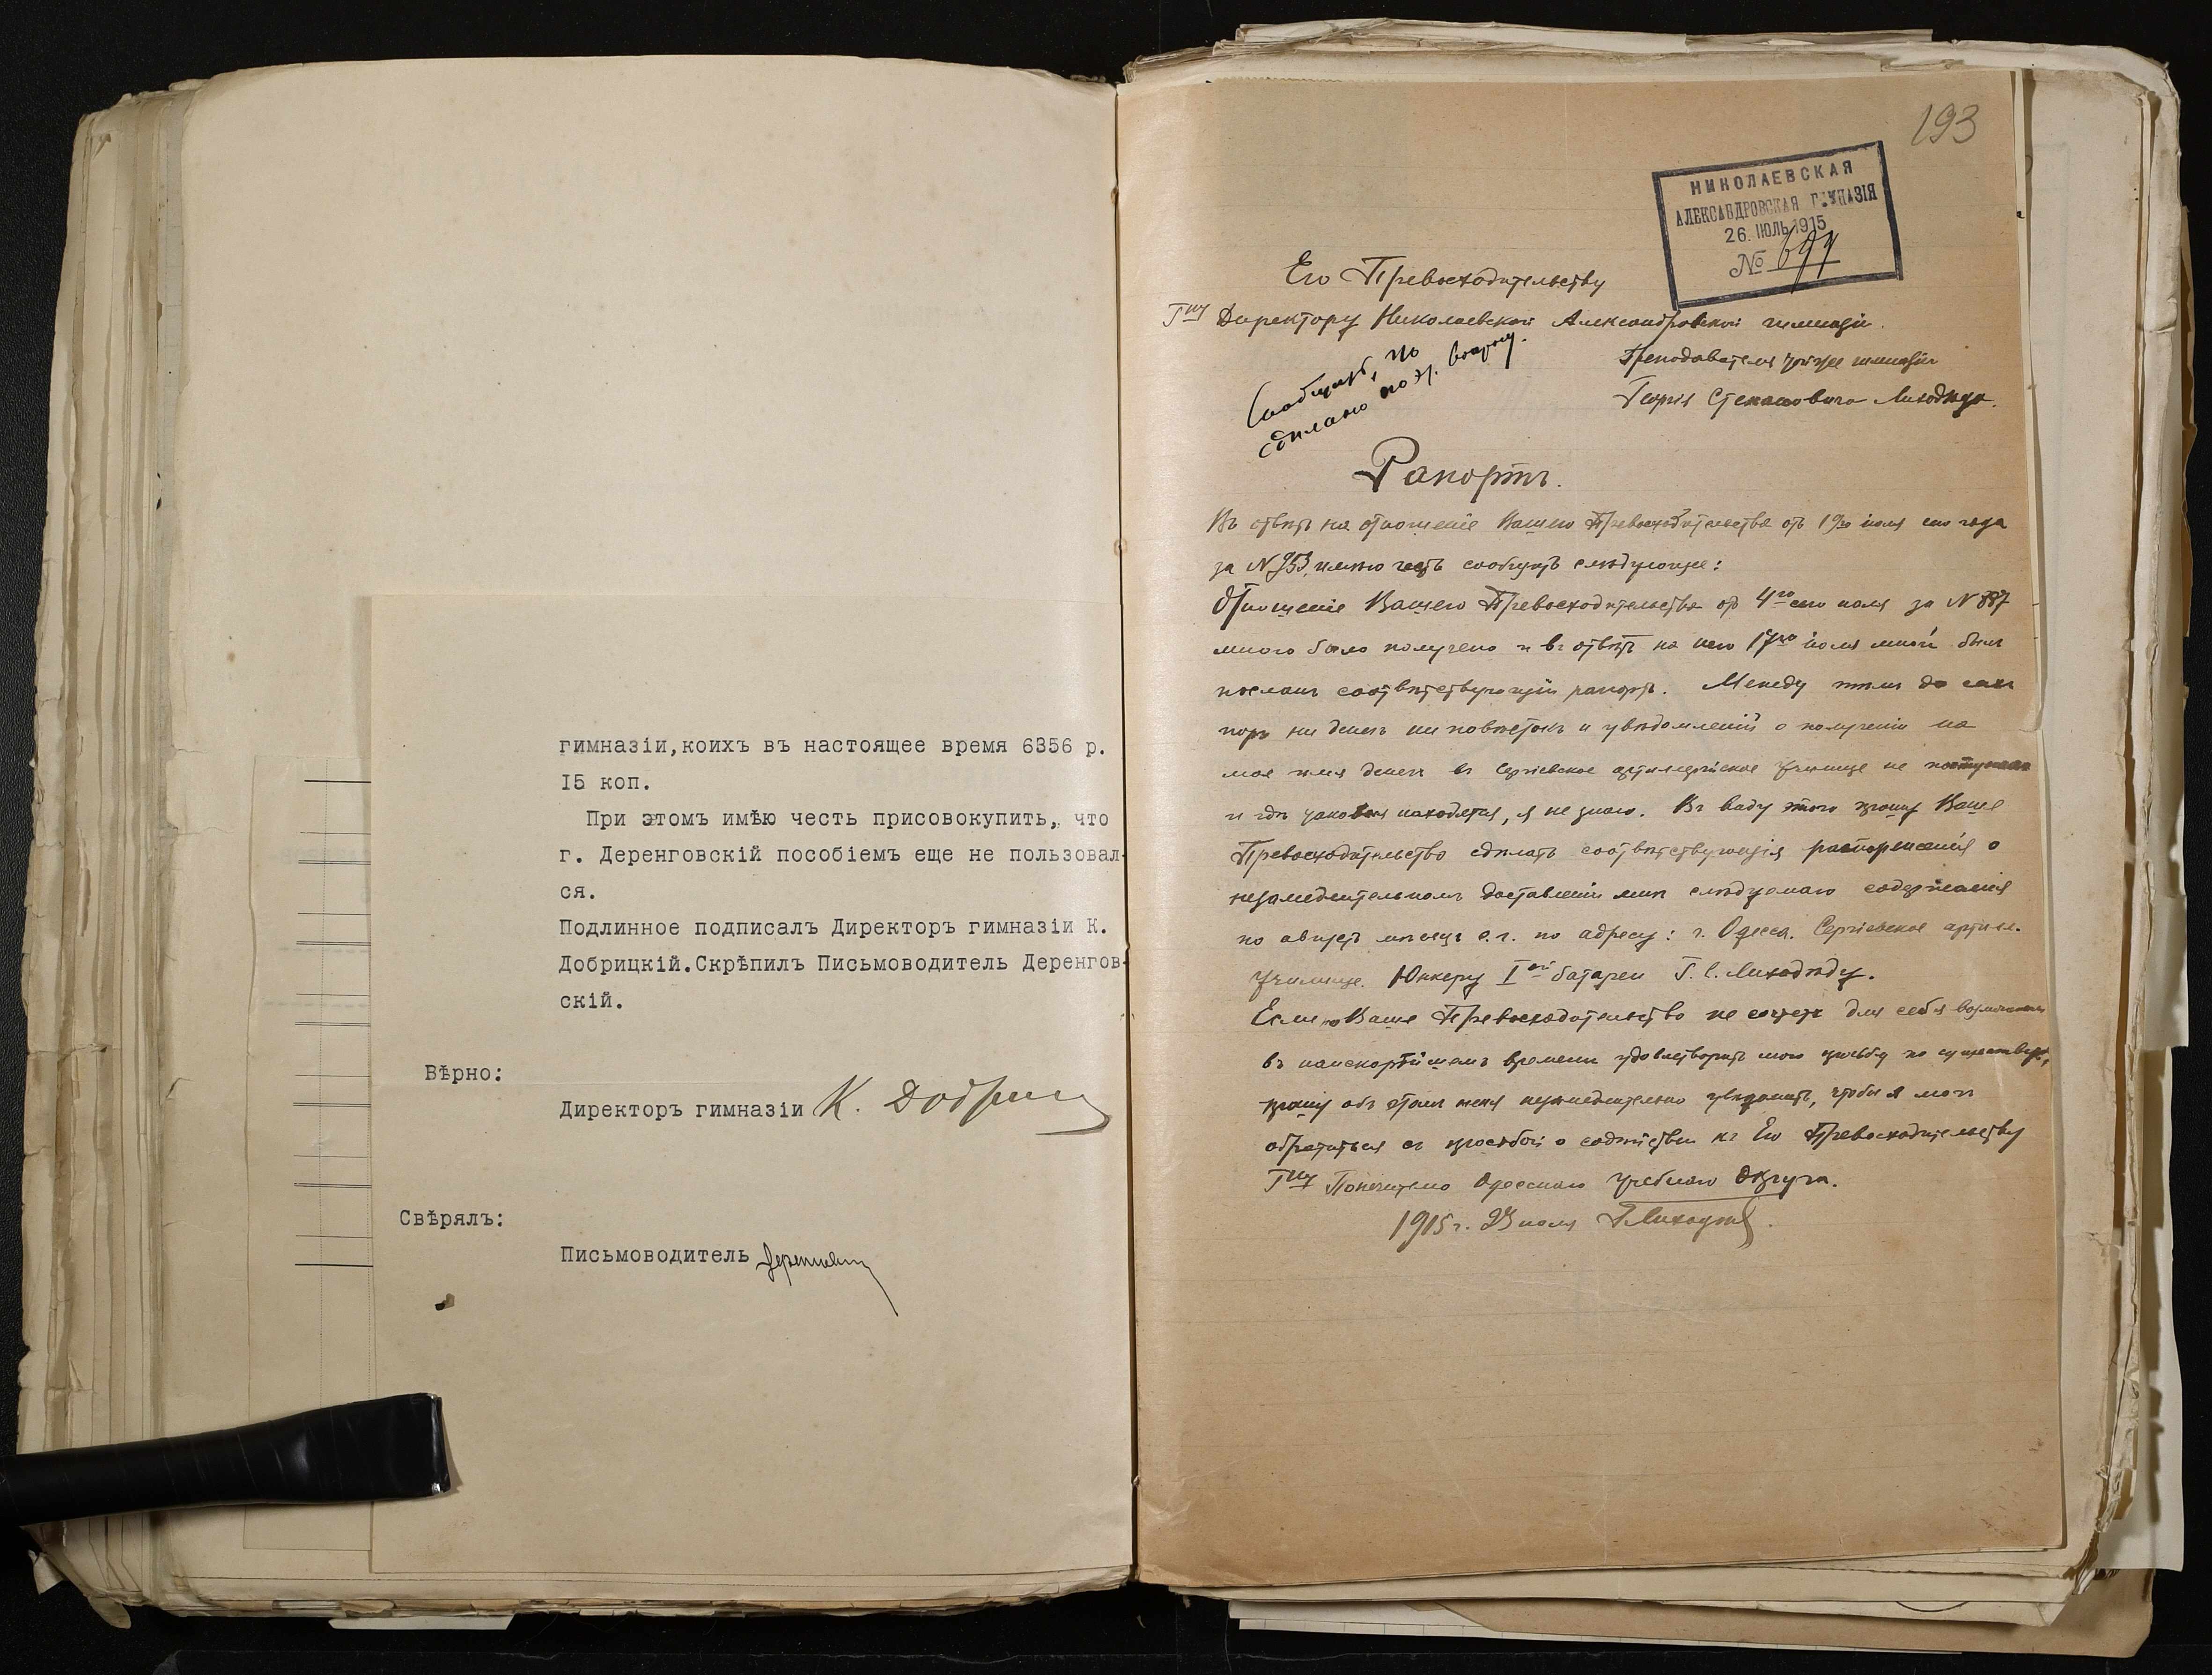 гимназіи,коихъ въ настоящее время 6356 р.
15 коп.
При этомъ имѣю честь присовокупить, что
г. Деренговскій пособіемъ еще не пользовал-
ся.
Подлинное подписалъ Директоръ гимназіи К.
Добрицкій.Скрѣпилъ Письмоводитель Деренгов-
скій.
Вѣрно:
Директоръ гимназіи К. Добриц
Свѣрялъ:
Письмоводитель Деренговскій
193
НИКОЛАЕВСКАЯ
АЛЕКСАНДРОВСКАЯ ГИМНАЗІЯ
26. ІЮЛЬ 1915
№ 699
Его Превосходительству
Гну Директору Николаевской Александровской гимназіи.
Преподавателя той же гимназіи
Георгія Степановича Лиходѣда.
Сообщить, что
сдѣлано по эт. вопросу.
Рапортъ.
Въ отвѣтъ на отношеніе Вашего Превосходительства отъ 19го іюля сего года
за N 953, имѣю честь сообщить слѣдующее:
Отношеніе Вашего Превосходительства отъ 4го сего іюля за N 887
мною было получено и въ отвѣтъ на него 17го іюля мной былъ
посланъ соотвѣтствующій рапортъ. Между тѣмъ до сихъ
поръ ни денегъ ни повѣстокъ и увѣдомленій о полученіи на
мое имя денегъ въ Сергіевское артиллерійское училище не поступало
и гдѣ таковыя находятся, я не знаю. Въ виду этого прошу Ваше
Превосходительство сдѣлать соотвѣтствующія распоряженія о
незамедлительномъ доставленіи мнѣ слѣдуемаго содержанія
по августъ мѣсяцъ с.г. по адресу: г. Одесса. Сергіевское артил.
училище. Юнкеру Iой батареи Г. С. Лиходѣду.
Если же Ваше Превосходительство не сочтетъ для себя возможнымъ
въ наискорѣйшемъ времени удовлетворить мою просьбу по существу,
прошу объ этомъ меня незамедлительно увѣдомить, чтобы я могъ
обратиться съ просьбой о содѣйствіи къ Его Превосходительству
Гну Попечителю Одесскаго Учебнаго Округа.
1915 г. 23 іюля Г. Лиходѣдъ.